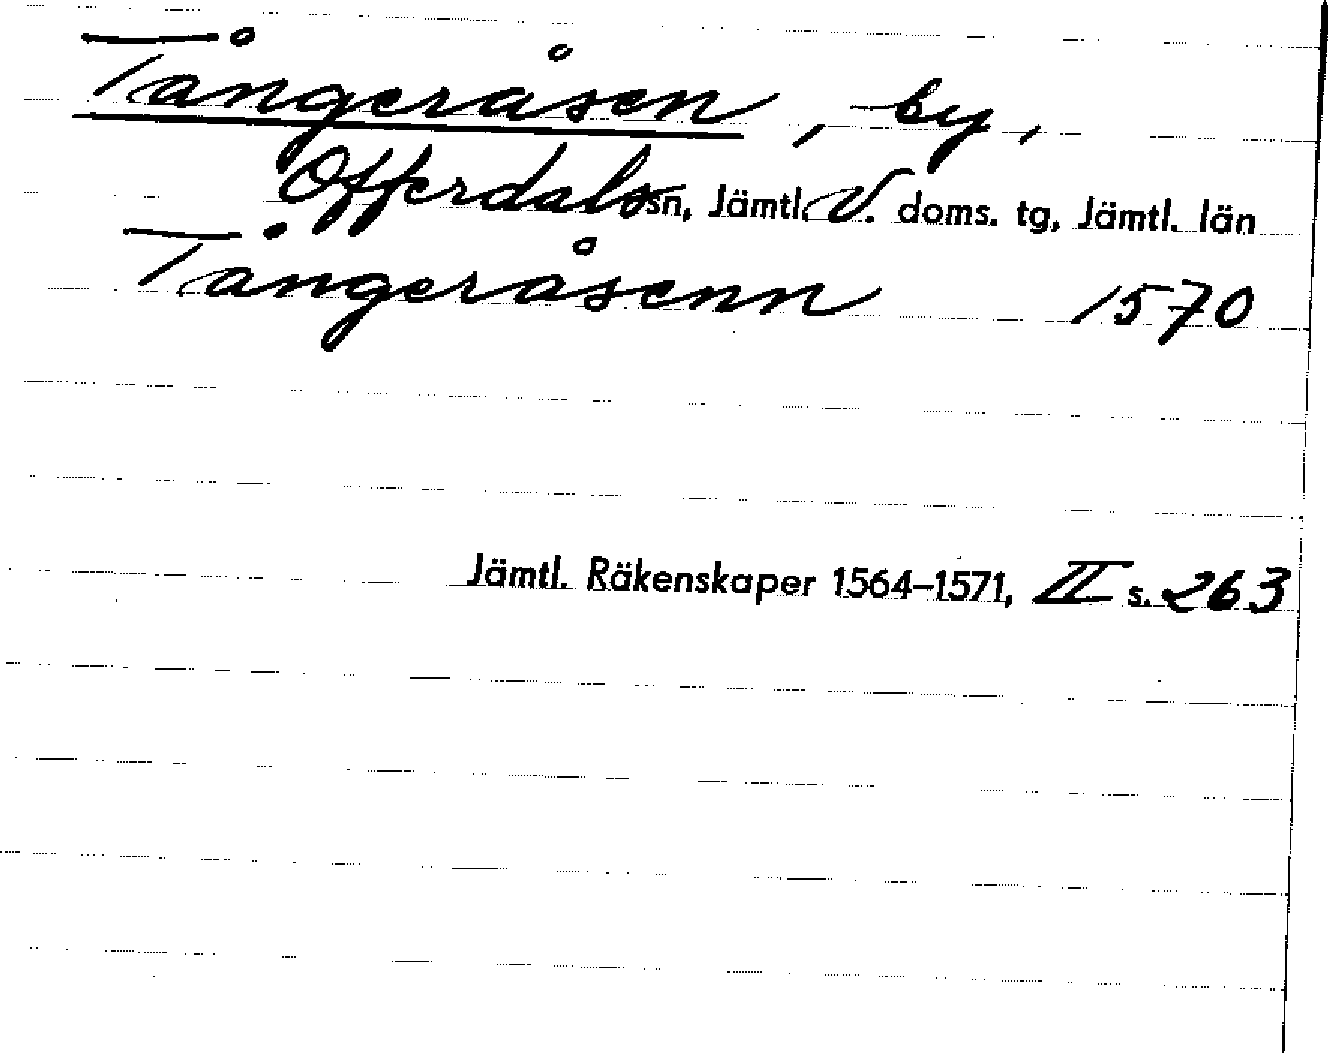 Tångeråsen, by,
Offerdals sn, Jämtl. V. doms. tg, Jämtl. län
Tångeråsenn 1570
Jämtl. Räkenskaper 1564–1571, II s. 263